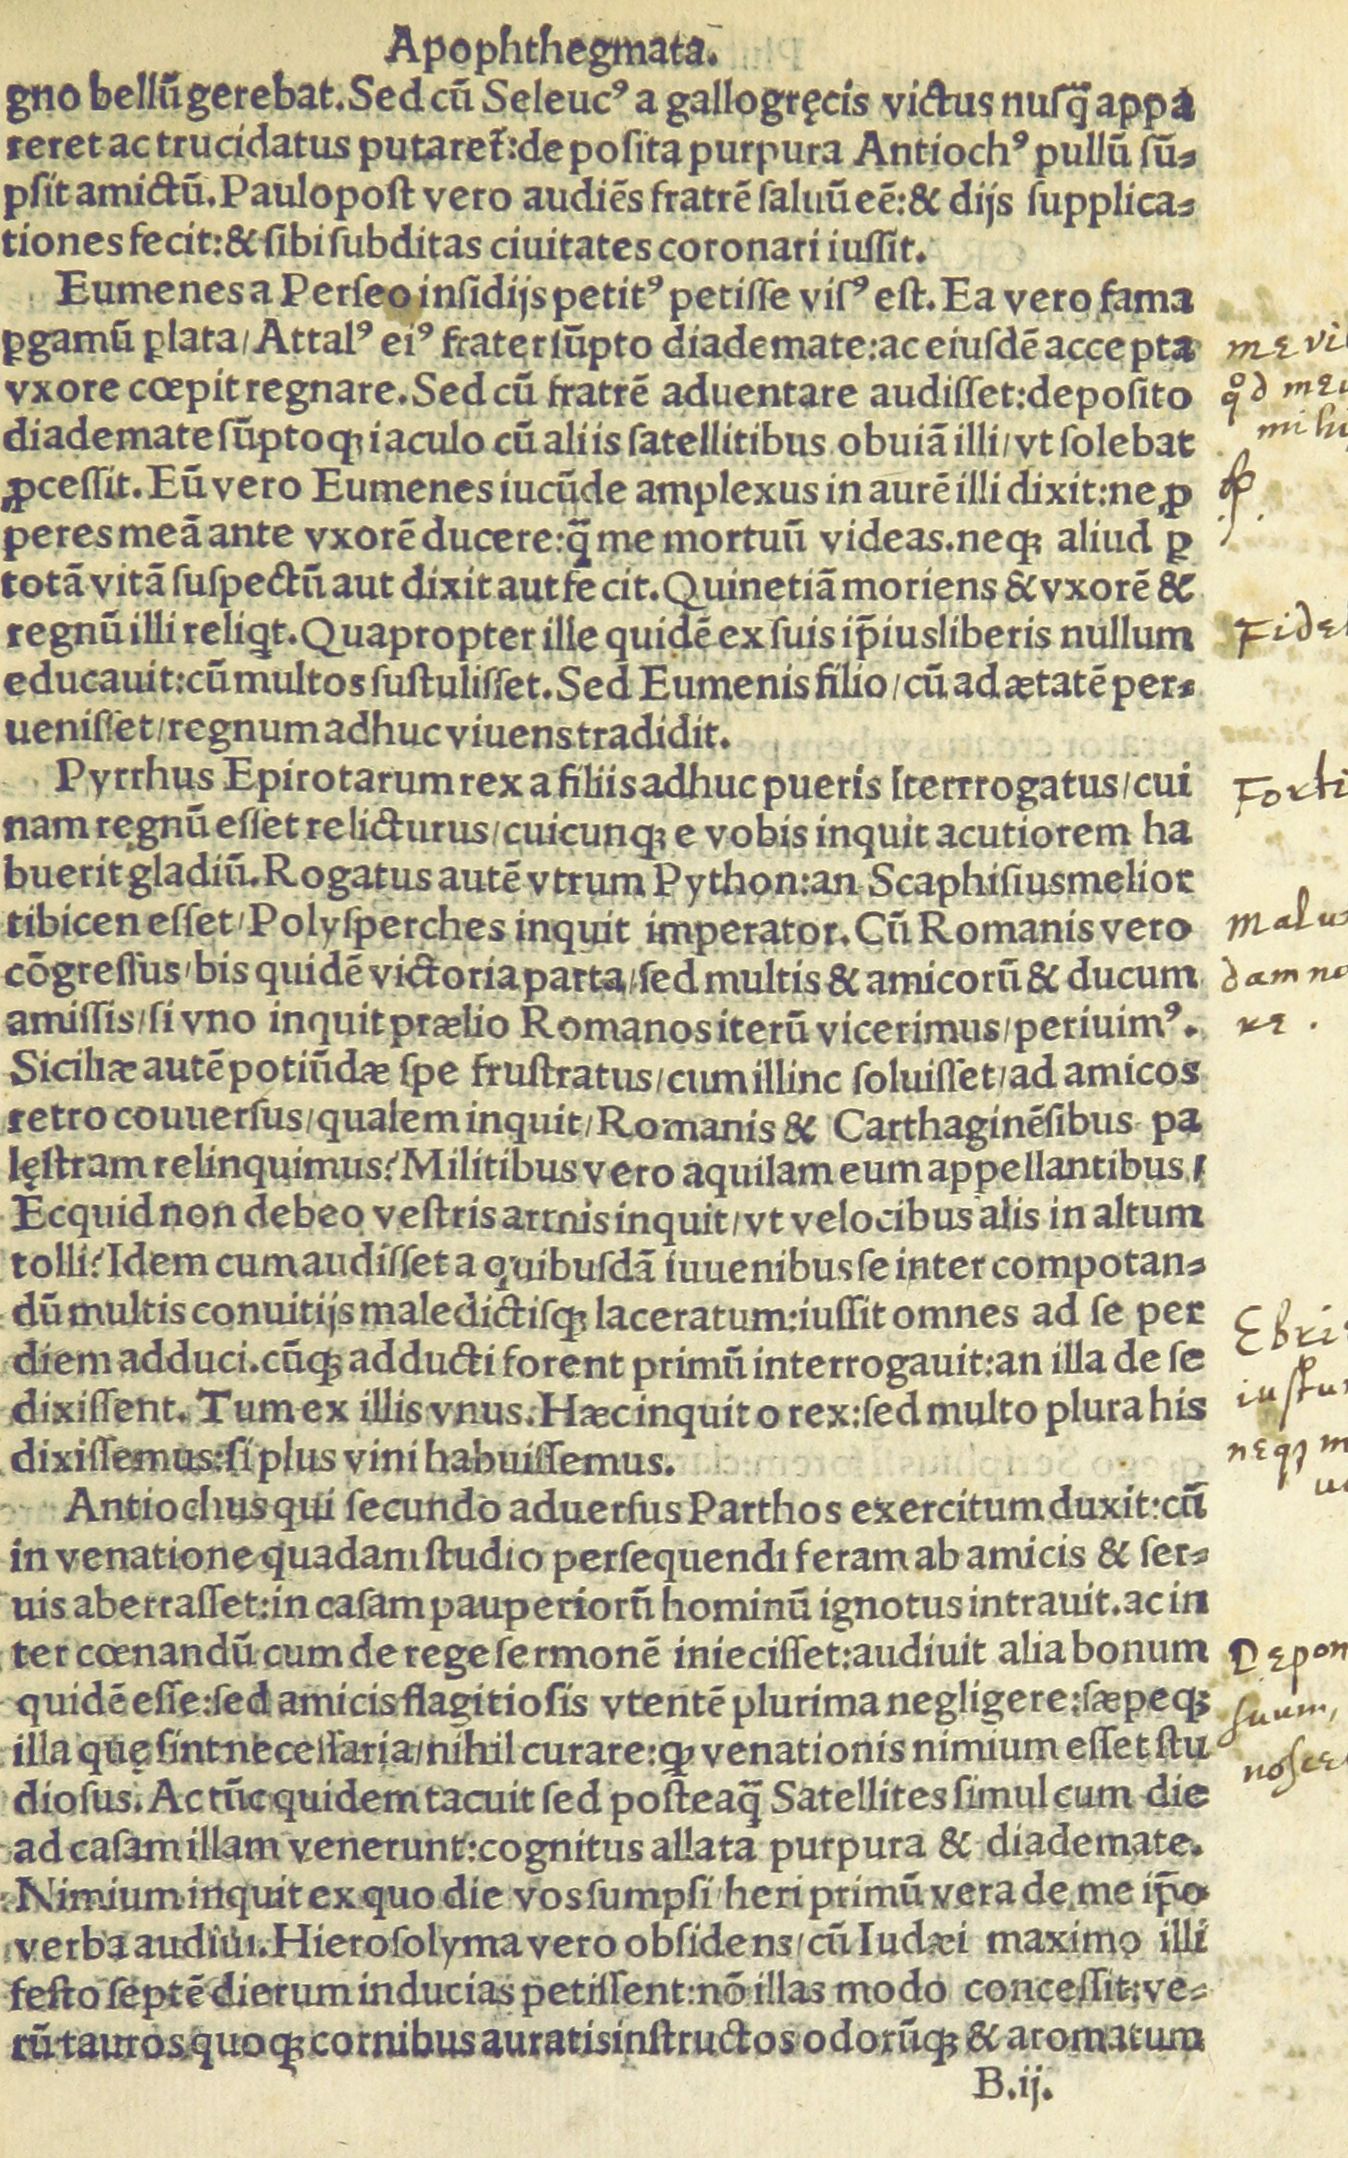 Apophthegmata.
gno bellũ gerebat. Sed cũ Seleucꝰ a gallogręcis victus nusq̃ appa
reret ac trucidatus putaret᷑: deposita purpura Antiochꝰ pullũ sũ-
psit amictũ. Paulopost vero audiẽs fratrẽ saluũ eẽ: & dijs supplica-
tiones fecit: & sibi subditas ciuitates coronari iussit.
Eumenes a Perseo insidijs petitꝰ petisse visꝰ est. Ea vero fama
ꝑgamũ ꝑlata/ Attalꝰ eiꝰ frater sũpto diademate: ac eiusdẽ accepta
vxore cœpit regnare. Sed cũ fratrẽ aduentare audisset: deposito
diademate sũptoqꝫ iaculo cũ aliis satellitibus obuiã illi/ vt solebat
ꝓcessit. Eũ vero Eumenes iucũde amplexus in aurẽ illi dixit: ne ꝓ
peres meã ante vxorẽ ducere: q̃ me mortuũ videas. neqꝫ aliud ꝑ
totã vitã suspectũ aut dixit aut fecit. Quinetiã moriens & vxorẽ &
regnũ illi reliqt. Quapropter ille quidẽ ex suis ip̃ius liberis nullum
educauit: cũ multos sustulisset. Sed Eumenis filio/ cũ ad ætatẽ per-
uenisset/ regnum adhuc viuens tradidit.
Pyrrhus Epirotarum rex a filiis adhuc pueris Iterrrogatus/ cui
nam regnũ esset relicturus/ cuicunqꝫ e vobis inquit acutiorem ha
buerit gladiũ. Rogatus autẽ vtrum Python: an Scaphisius melior
tibicen esset/ Polysperches inquit imperator. Cũ Romanis vero
cõgressus/ bis quidẽ victoria parta/ sed multis & amicorũ & ducum
amissis/ si vno inquit prælio Romanos iterũ vicerimus/ periuimꝰ.
Siciliæ autẽ potiũdæ spe frustratus/ cum illinc soluisset/ ad amicos
retro couuersus/ qualem inquit/ Romanis & Carthaginẽsibus pa
lęstram relinquimus? Militibus vero aquilam eum appellantibus/
Ecquid non debeo vestris armis inquit/ vt velocibus alis in altum
tolli? Idem cum audisset a quibusdã iuuenibus se inter compotan-
dũ multis conuitijs maledictisqꝫ laceratum: iussit omnes ad se per
diem adduci. cũqꝫ adducti forent primũ interrogauit: an illa de se
dixissent. Tum ex illis vnus. Hæc inquit o rex: sed multo plura his
dixissemus: si plus vini habuissemus.
Antiochus qui secundo aduersus Parthos exercitum duxit: cũ
in venatione quadam studio persequendi feram ab amicis & ser-
uis aberrasset: in casam pauperiorũ hominũ ignotus intrauit. ac in
ter cœnandũ cum de rege sermonẽ iniecisset: audiuit alia bonum
quidẽ esse: sed amicis flagitiosis vtentẽ plurima negligere: sæpeqꝫ
illa quę sint necessaria/ nihil curare: qꝫ venationis nimium esset stu
diosus. Ac tũc quidem tacuit sed posteaq̃ Satellites simul cum die
ad casam illam venerunt: cognitus allata purpura & diademate.
Nimium inquit ex quo die vos sumpsi/ heri primũ vera de me ip̃o
verba audiui. Hierosolyma vero obsidens/ cũ Iudæi maximo illi
festo septẽ dierum inducias petissent: nõ illas modo concessit: ve-
rũ tauros quoqꝫ cornibus auratis instructos odorũqꝫ & aromatum
B.ij.
Fidel
Forti
malus
damno
re.
Ebri
iustu
neqꝫ m
Depon
suum,
nosce